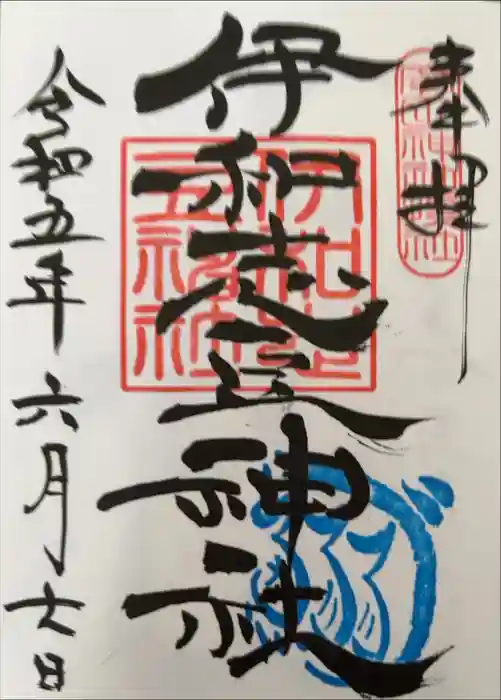 奉拝
伊和志豆神社
伊和志
豆神社
令和五年六月七日